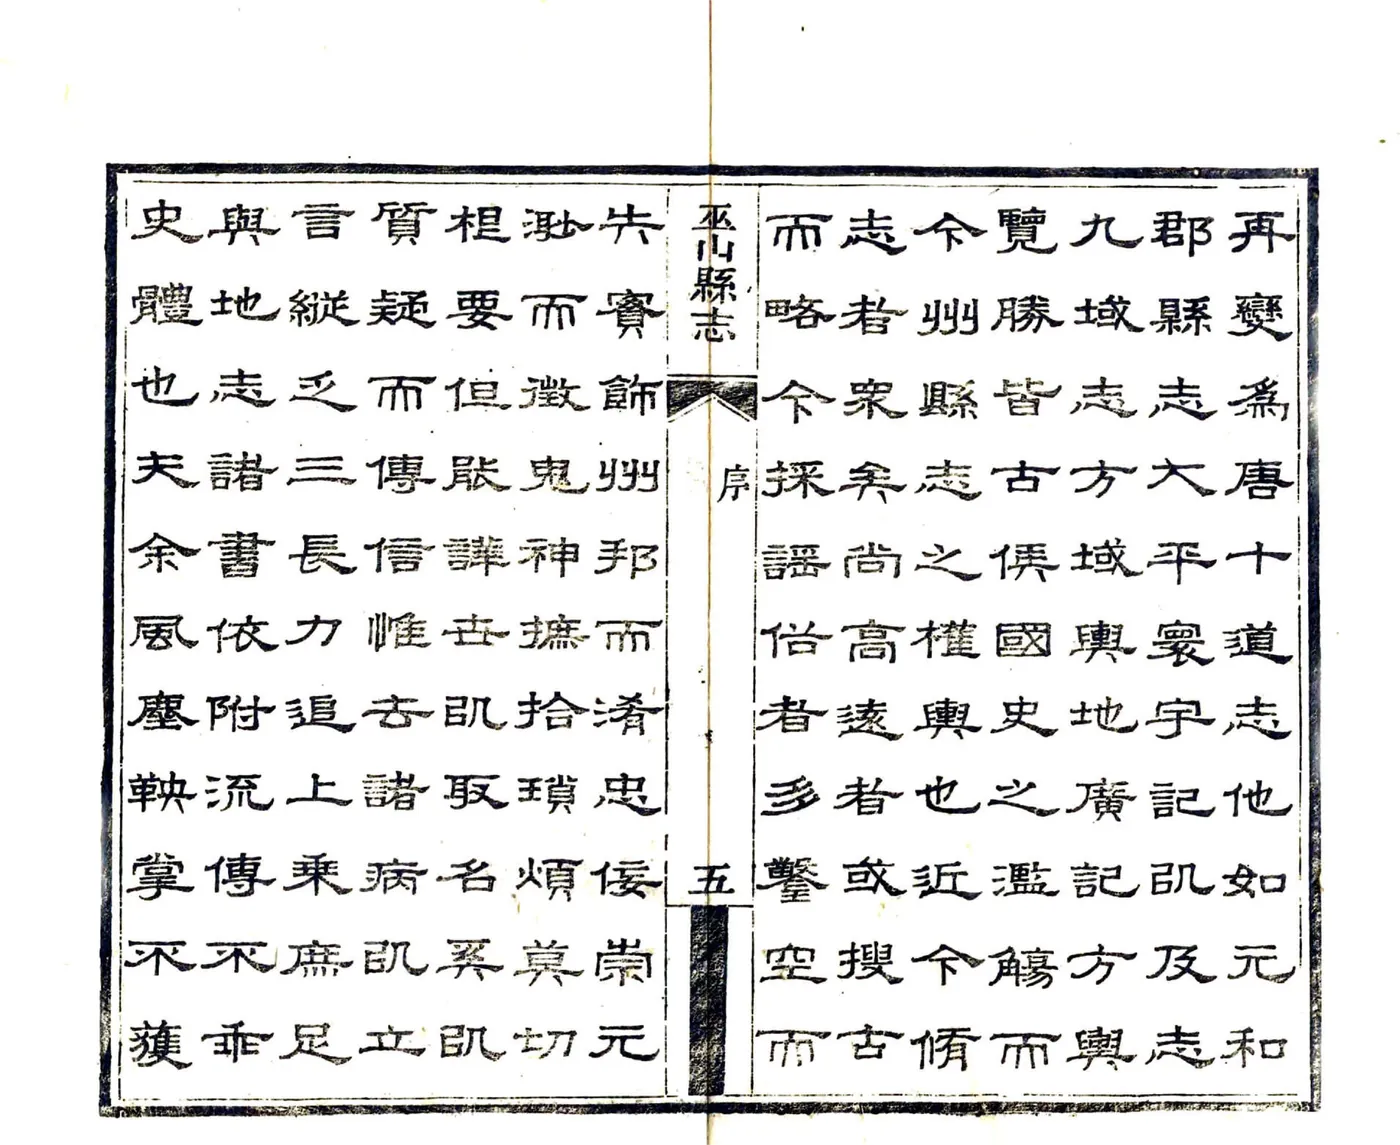 再變為唐十道志他如元和
郡縣志大平寰宇記㕥及志
九域志方域輿地廣記方輿
覽勝皆古侯國史之濫觴而
今州縣志之權輿也近今脩
志者眾矣尚高遠者或搜古
而略今採謡俗者多鑿空而
巫山縣志
序
五
失實飾州邦而淆忠佞崇元
渺而徵鬼神摭拾瑣煩莫切
根要但能譁世㕥取名奚㕥
質疑而傳信惟去諸病㕥立
言縱乏三長力追上乘庶足
與地志諸書依附流傳不乖
史體也夫余風塵鞅掌不獲